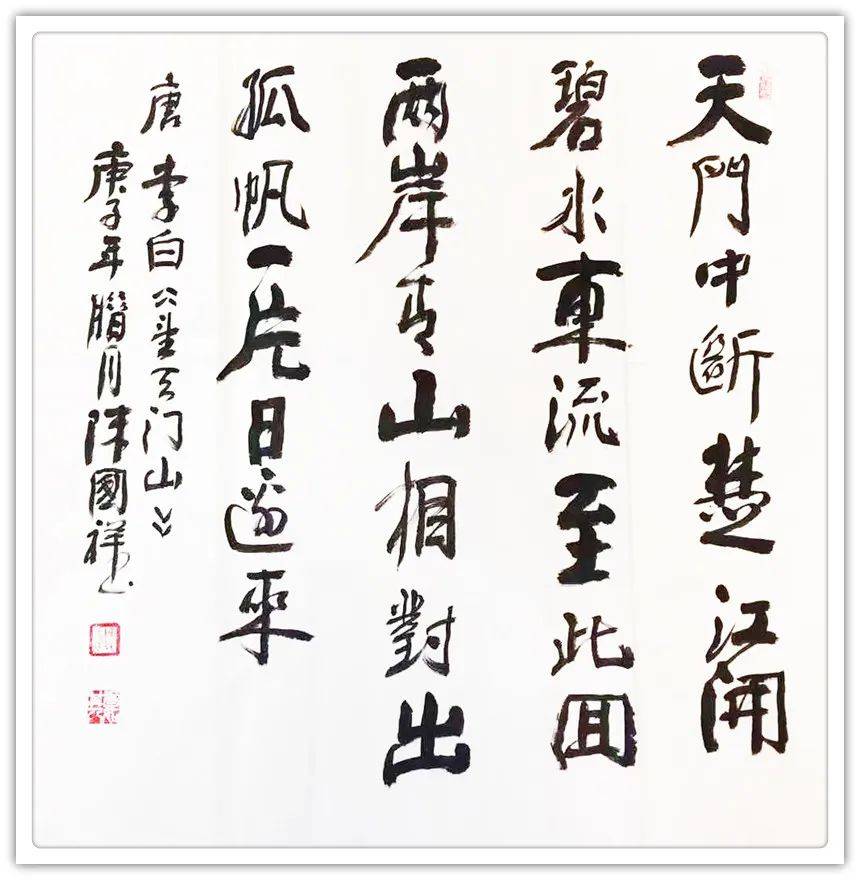 天門中斷楚江開
碧水東流至此囬
兩岸青山相對出
孤帆一片日邊來
唐 李白《望天门山》
庚子年腊月陳國祥书